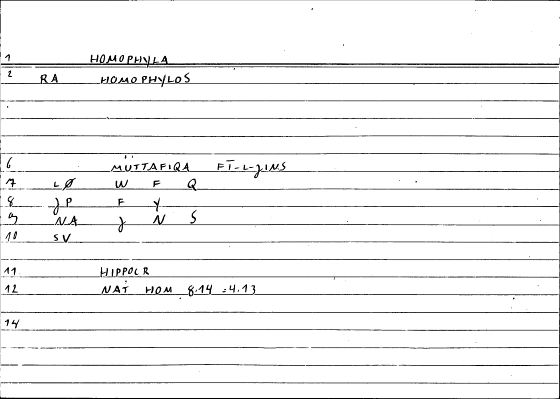 1 HOMOPHYLA
2 RA HOMOPHYLOS
6 MUTTAFIQA FĪ-L-ǧINS
7 LØ W F Q
8 ǧP F Y
9 NA ǧ N S
10 SV
11 HIPPOCR
12 NAT HOM 8.14 = 4.13
14